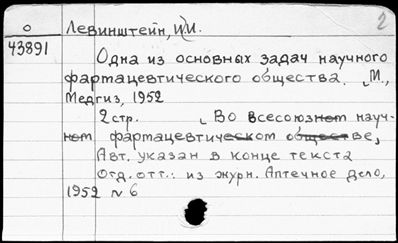 2
О Левинштейн, И.И.
43891
Одна из основных задач научного
фармацевтического общества. М.,
Медгиз, 1952
2 стр. Во всесоюзном науч-
ном фармацевтическом обществе,
Авт. указан в конце текста
Отд. отт.: из журн. Аптечное дело,
1952 № 6